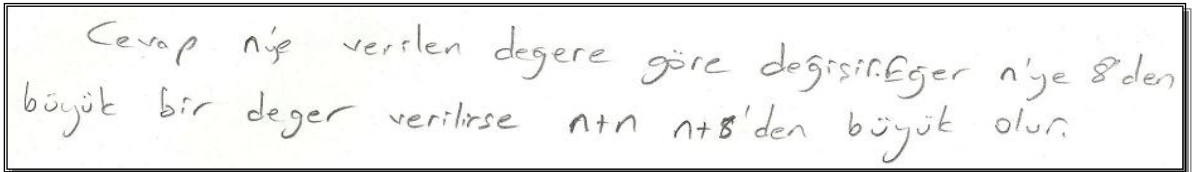 Cevap n'ye verilen değere göre değişir. Eğer n'ye 8'den
büyük bir değer verilirse n+n n+8'den büyük olur.